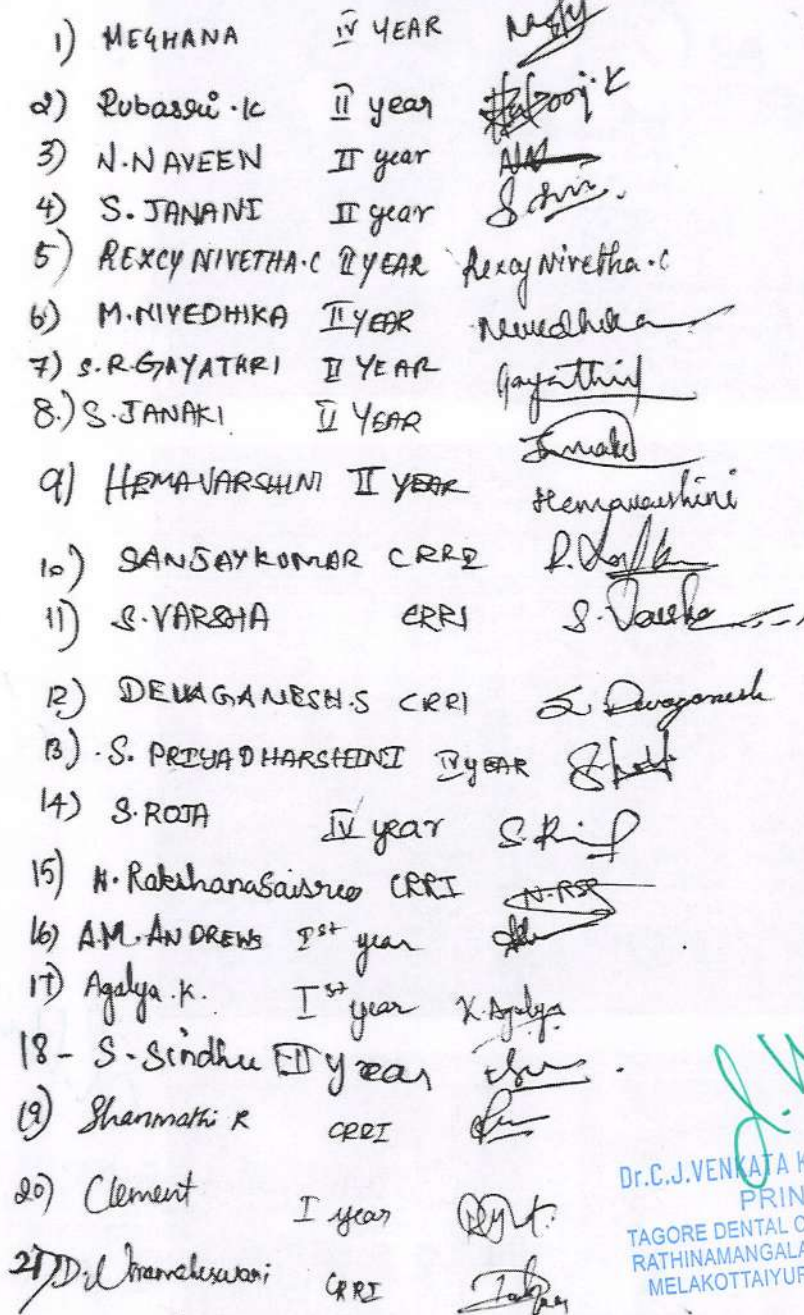 1) MEGHANA IV YEAR
2) Rubasri.K II year
3) N.NAVEEN II year
4) S.JANANI II year
5) REXCY NIVETHA.C II YEAR Rexcy Nivetha.c
6) M.NIVEDHIKA II YEAR Nivedhika
7) S.R.GAYATHRI II YEAR Gayathri
8.) S.JANAKI II YEAR Janaki
9) HEMAVARSHINI II YEAR Hemavarshini
10) SANJAYKUMAR CRRI
11) S.VARSHA CRRI S.Varsha
12) DEVAGANESH.S CRRI S. Devaganesh
13) .S. PRIYADHARSHINI IV YEAR
14) S.ROJA IV year
15) N.RakshanaSaisree CRRI N.RSR
16) A.M.ANDREWS Ist year
17) Agalya.K. Ist year K.Agalya
18- S-Sindhu II year
19) Shanmathi R CRRI
20) Clement I year
21) D.Umamaheswari CRRI
Dr.C.J.VENKATA K
PRIN
TAGORE DENTAL C
RATHINAMANGALA
MELAKOTTAIYUR